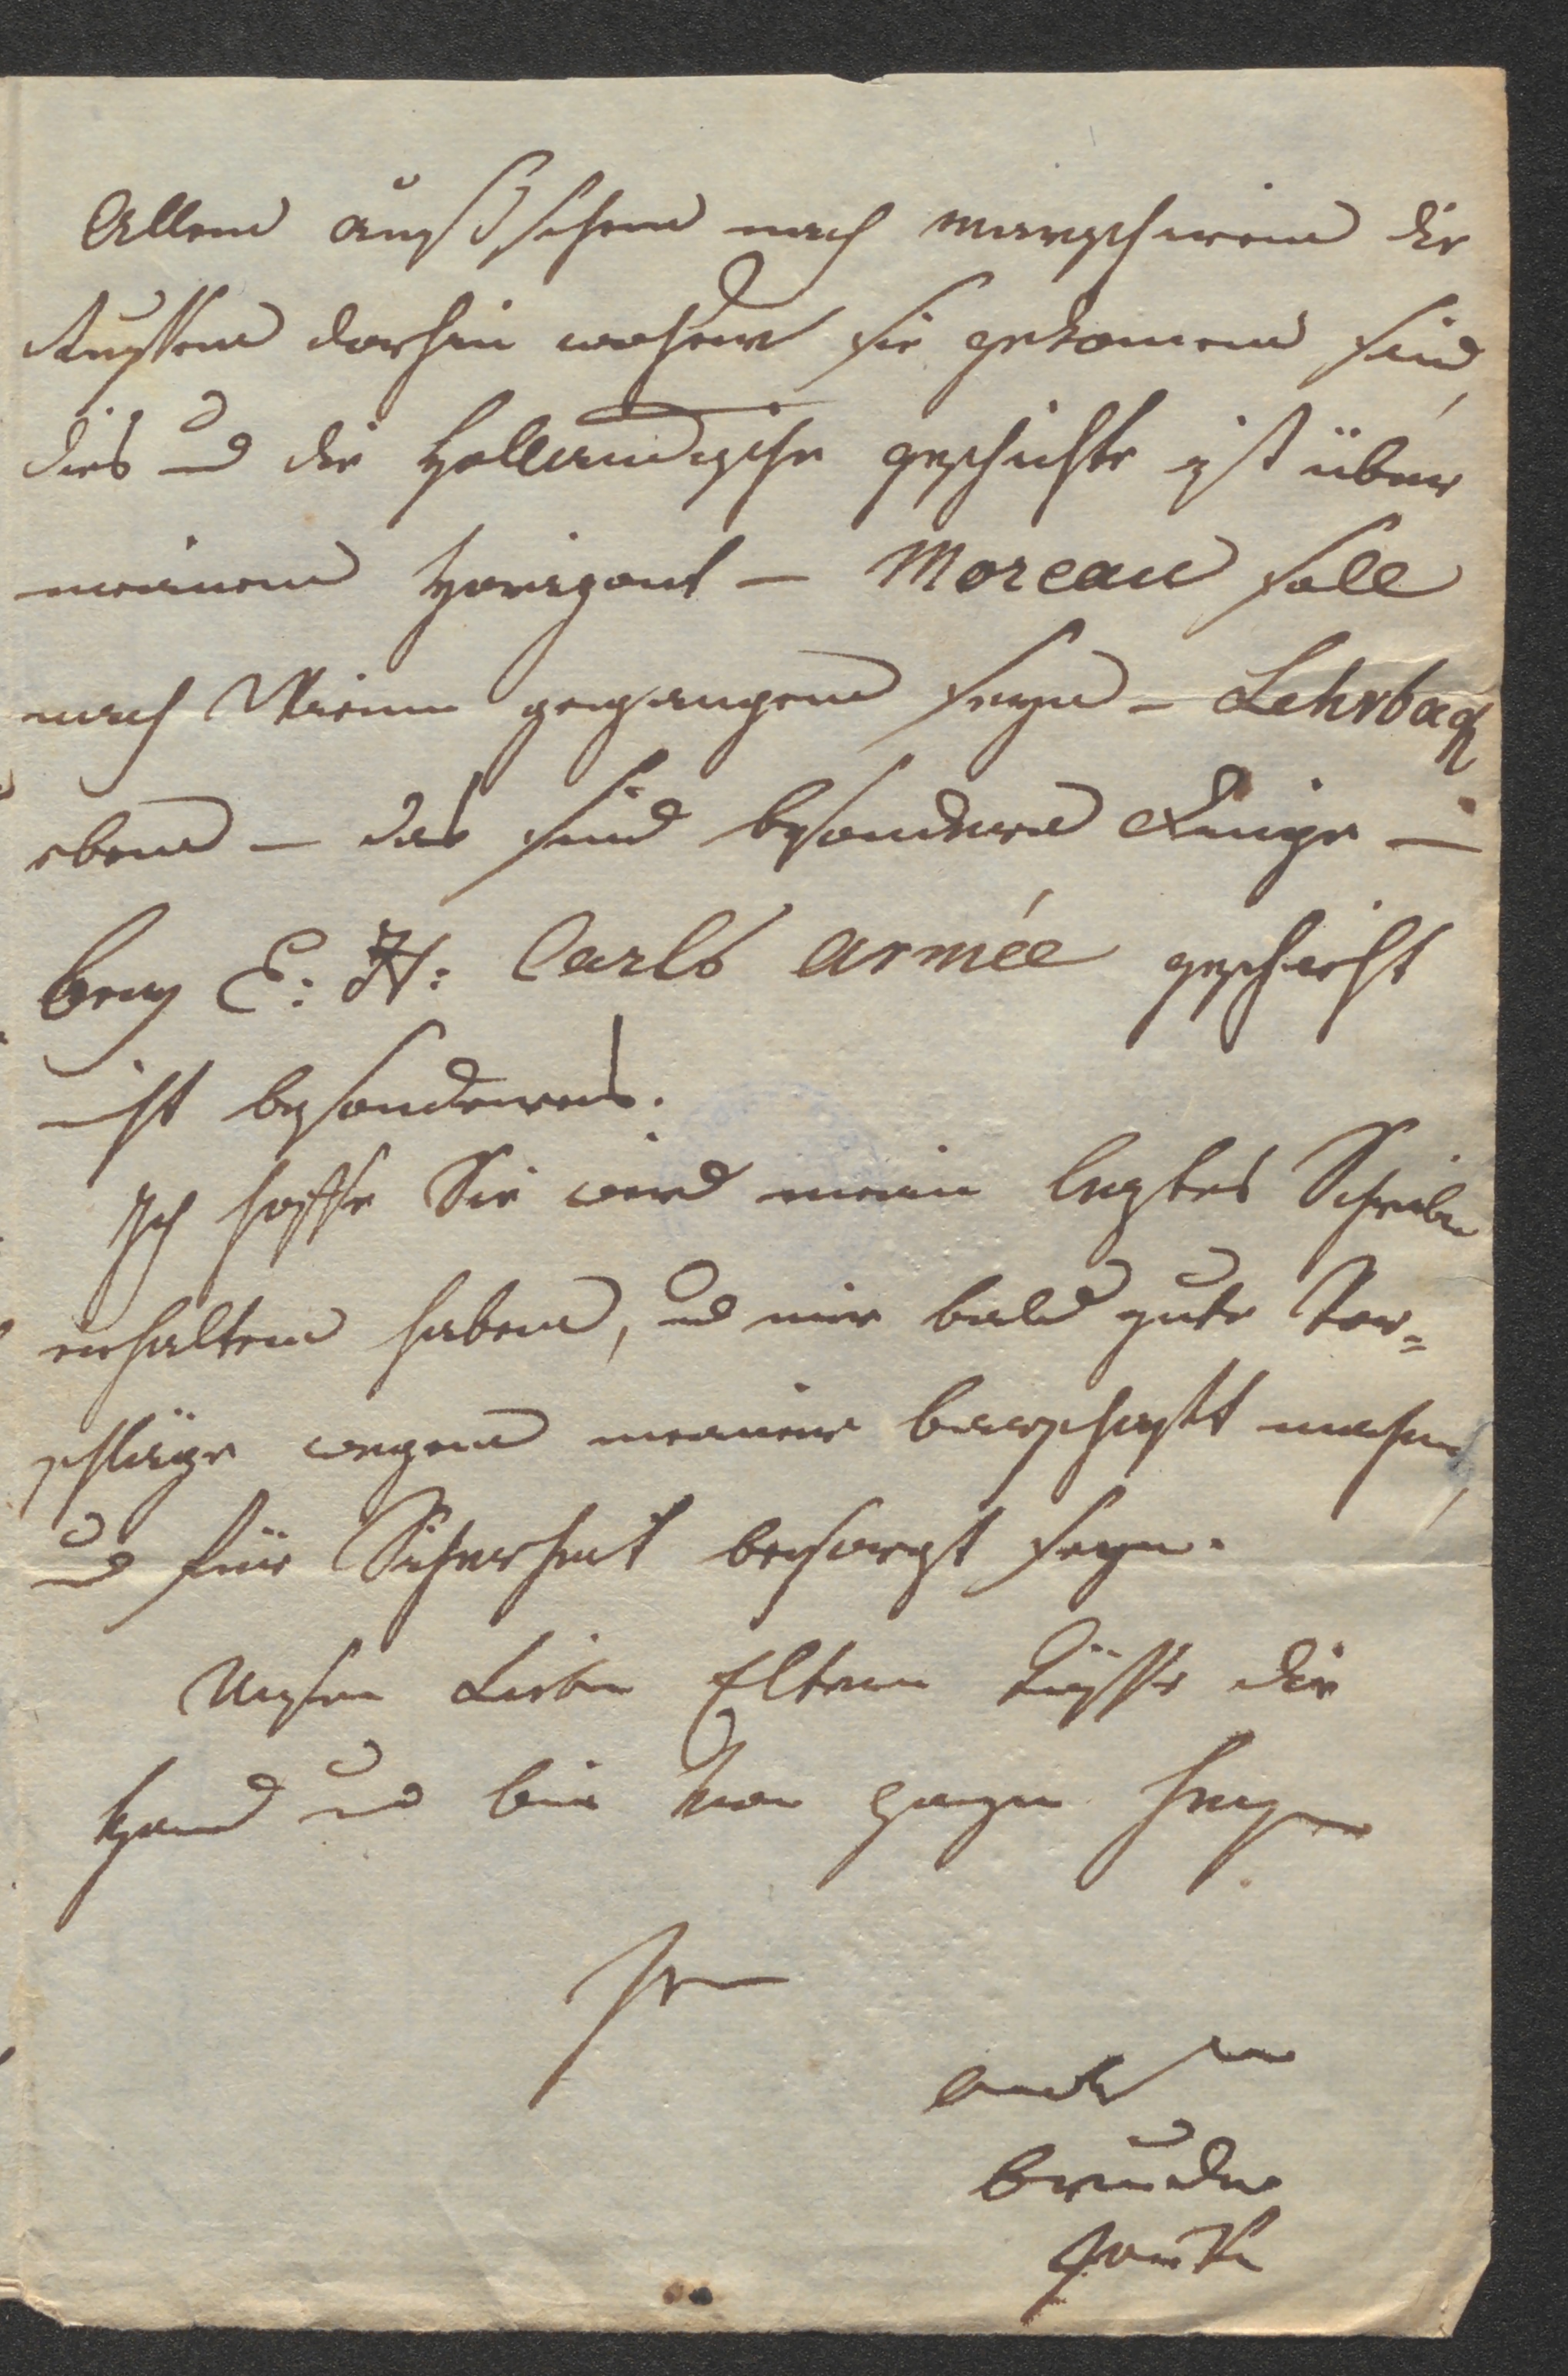 Allem außsehen nach marschiren die
Russen dorhin woher sie gekomen sind,
dies und die Holländische geschichte ist über
meinen Horizont – Moreau soll
nach Wienn gegangen seyn – Lehrbach
eben – das sind besondere Dinge –
bey E: H: Carls armée geschieht
nichts besonderes.
Ich hoffe Sie wird mein leztes Schreiben
erhalten haben, und mir bald gute Vor=
schläge wegen meiner barschafft machen,
und für Sicherheit besorgt seyn.
Unsern Lieben Eltern küsse die
Hand und bin von ganzen Herzen
Ihr
Bruder